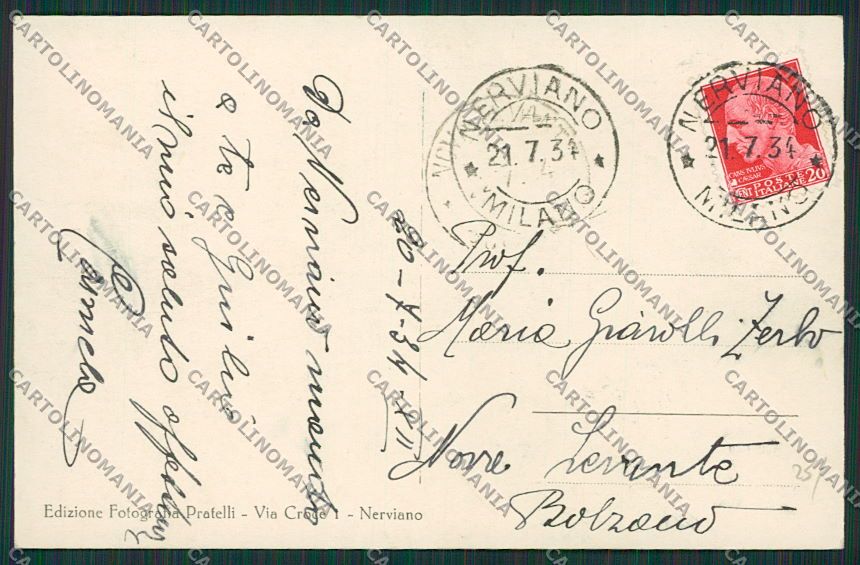 Da Nerviano mando
a te e Giulio
il mio saluto affettuoso
Carmela
20-7-34-XII
NERVIANO
21.7.34
MILANO
NERVIANO
21.7.34
MILANO
CAIVS IVLIVS
CAESAR
CENT 20
POSTE
ITALIANE
Prof.
Maria Giarolli Zerbo
Nova Levante
Bolzano
25
Edizione Fotografia Pratelli - Via Croce 1 - Nerviano
CARTOLINOMANIA